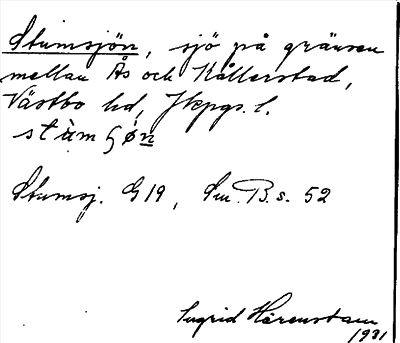 Stumsjön, sjö på gränsen
mellan Ås och Kållerstad,
Västbo hd, Jkpgs. l.
stùmʃøn
Stumsj. G19, Sm. B. s. 52
Ingrid Härenstam
1931